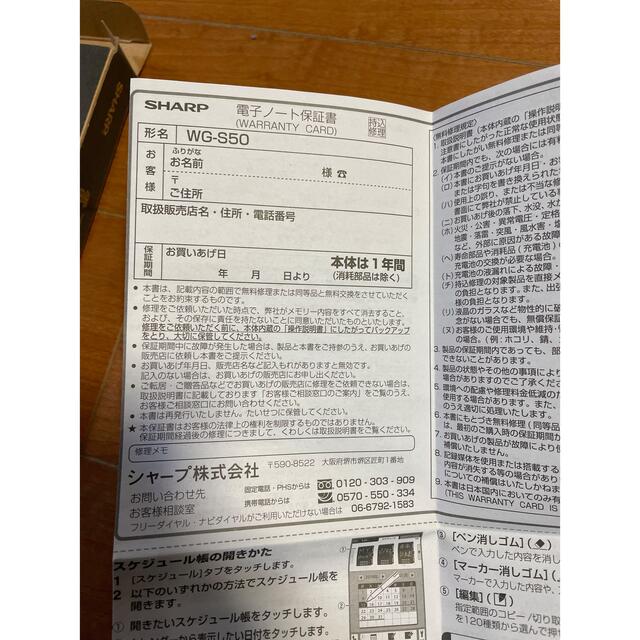 SHARP
SHARP
電子ノート保証書
(WARRANTY CARD)
持込
修理
形名
WG-S50
お客様
ふりがな
お名前
様 ☎
〒
ご住所
取扱販売店名・住所・電話番号
保証期間
お買いあげ日
年 月 日より
本体は1年間
(消耗部品は除く)
● 本書は、記載内容の範囲で無料修理または同等品と無料交換をさせていただく
ことをお約束するものです。
● 修理をご依頼いただいた時点で、弊社がメモリー内容をすべて消去すること、
および、その保存に責任を持たないことに同意いただいたものといたします。
修理をご依頼いただく前に、本体内蔵の「操作説明書」にしたがってバックアップ
をとり、大切に保管してください。
● 保証期間中に故障が発生した場合は、製品と本書をご持参のうえ、お買いあげの
販売店に依頼し本書をご提示ください。
● お買いあげ年月日、販売店名など記入もれがありますと無効です。
記入のない場合は、お買いあげの販売店にお申し出ください。
● ご転居・ご贈答品などでお買いあげの販売店に修理をご依頼できない場合は、
取扱説明書に記載しております「お客様ご相談窓口のご案内」をご覧のうえ、
お客様ご相談窓口にお問い合わせください。
● 本書は再発行いたしません。たいせつに保管してください。
★ 本保証書はお客様の法律上の権利を制限するものではありません。
保証期間経過後の修理につきまして、くわしくは取扱説明書をご覧ください。
修理メモ
シャープ株式会社
〒590-8522 大阪府堺市堺区匠町1番地
お問い合わせ先
お客様相談室
固定電話・PHSからは
0120-303-909
携帯電話からは
0570-550-334
フリーダイヤル・ナビダイヤルがご利用いただけない場合は 06-6792-1583
(無料修理規定)
1. 取扱説明書(本体内蔵の「操作説明
注意書にしたがった正常な使用状態
本書にしたがい無料修理または同等
2. 保証期間内でも、次の場合には有料
(イ) 本書のご提示がない場合。
(ロ) 本書にお買いあげ年月日・お客
または字句を書き換えられた
(ハ) 使用上の誤り、または不当な修
書面にて弊社が禁止している
(ニ) お買いあげ後の落下、水没、水
(ホ) 火災・公害・異常電圧・定格
地震・落雷・突風・風水害・塩
など、外部に原因がある故障
(ヘ) 寿命部品や消耗品(充電池)
充電池の交換が必要な場合。
(ト) 充電池の液漏れによる故障・
(チ) 持込修理の対象製品を直接
の負担となります。また、出
様の負担となります。
(リ) 液晶のガラスなど物性的に破
念がない場合でも、無償保証
(ヌ) お客様のご使用環境や維持・
の場合。(例:ホコリ、錆、
3. 製品の保証期間内であっても、部
できないことがあります。
4. 製品の状態やその他の事項により
がありますのでご了承くださ
5. 環境への配慮や修理料金低減のた
使用する場合があります。また、
のうえ適切に処理いたします。
6. 本書にもとづき無料修理(同等品
は、最初のご購入時の保証期間が
7. お買いあげの製品が故障により使
補償いたしません。
8. 記録媒体を使用または搭載する
内容が消失する等の場合があり
についての補償はいたしかねま
9. 本書は日本国内においてのみ有
(THIS WARRANTY CARD IS
スケジュール帳の開きかた
1 [スケジュール]タブをタッチします。
2 以下のいずれかの方法でスケジュール帳を
開きます。
① 開きたいスケジュール帳をタッチします。
カレンダーから表示したい日付をタッチします。
③ [ペン消しゴム]
ペンで入力した内容を消し
④ [マーカー消しゴム]
マーカーで入力した内容や、
⑤ [編集]
指定範囲のコピー/切り取
を120種類から選んで押